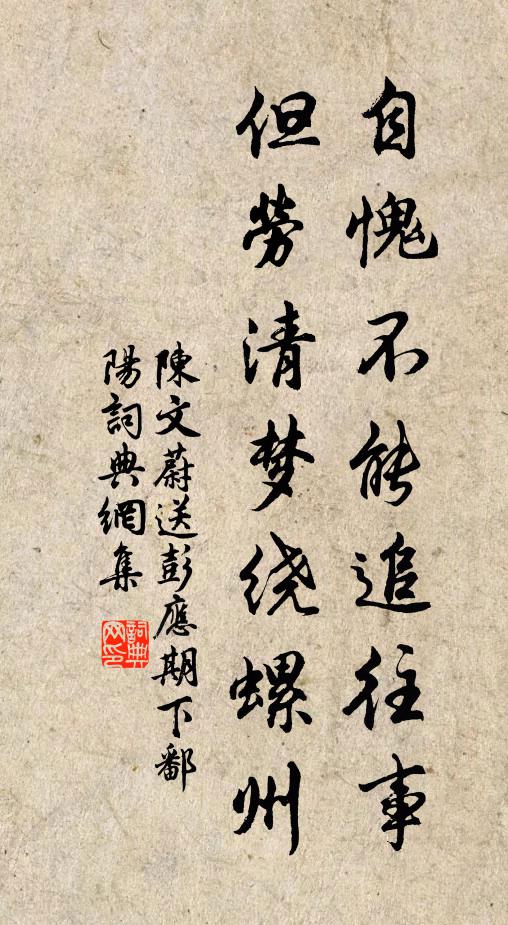 自愧不能追往事
但劳清梦绕螺州
陳文蔚送彭應期下鄱
陽詞典網集
詞典网印